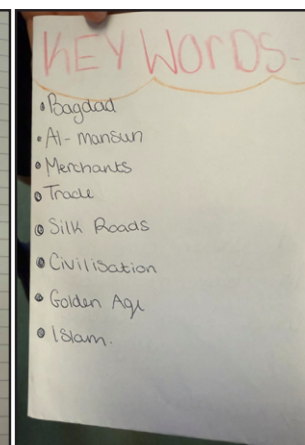 KEY WORDS-
•Bagdad
•Al-mansun
•Merchants
•Trade
•Silk Roads
•Civilisation
•Golden Age
•Islam.